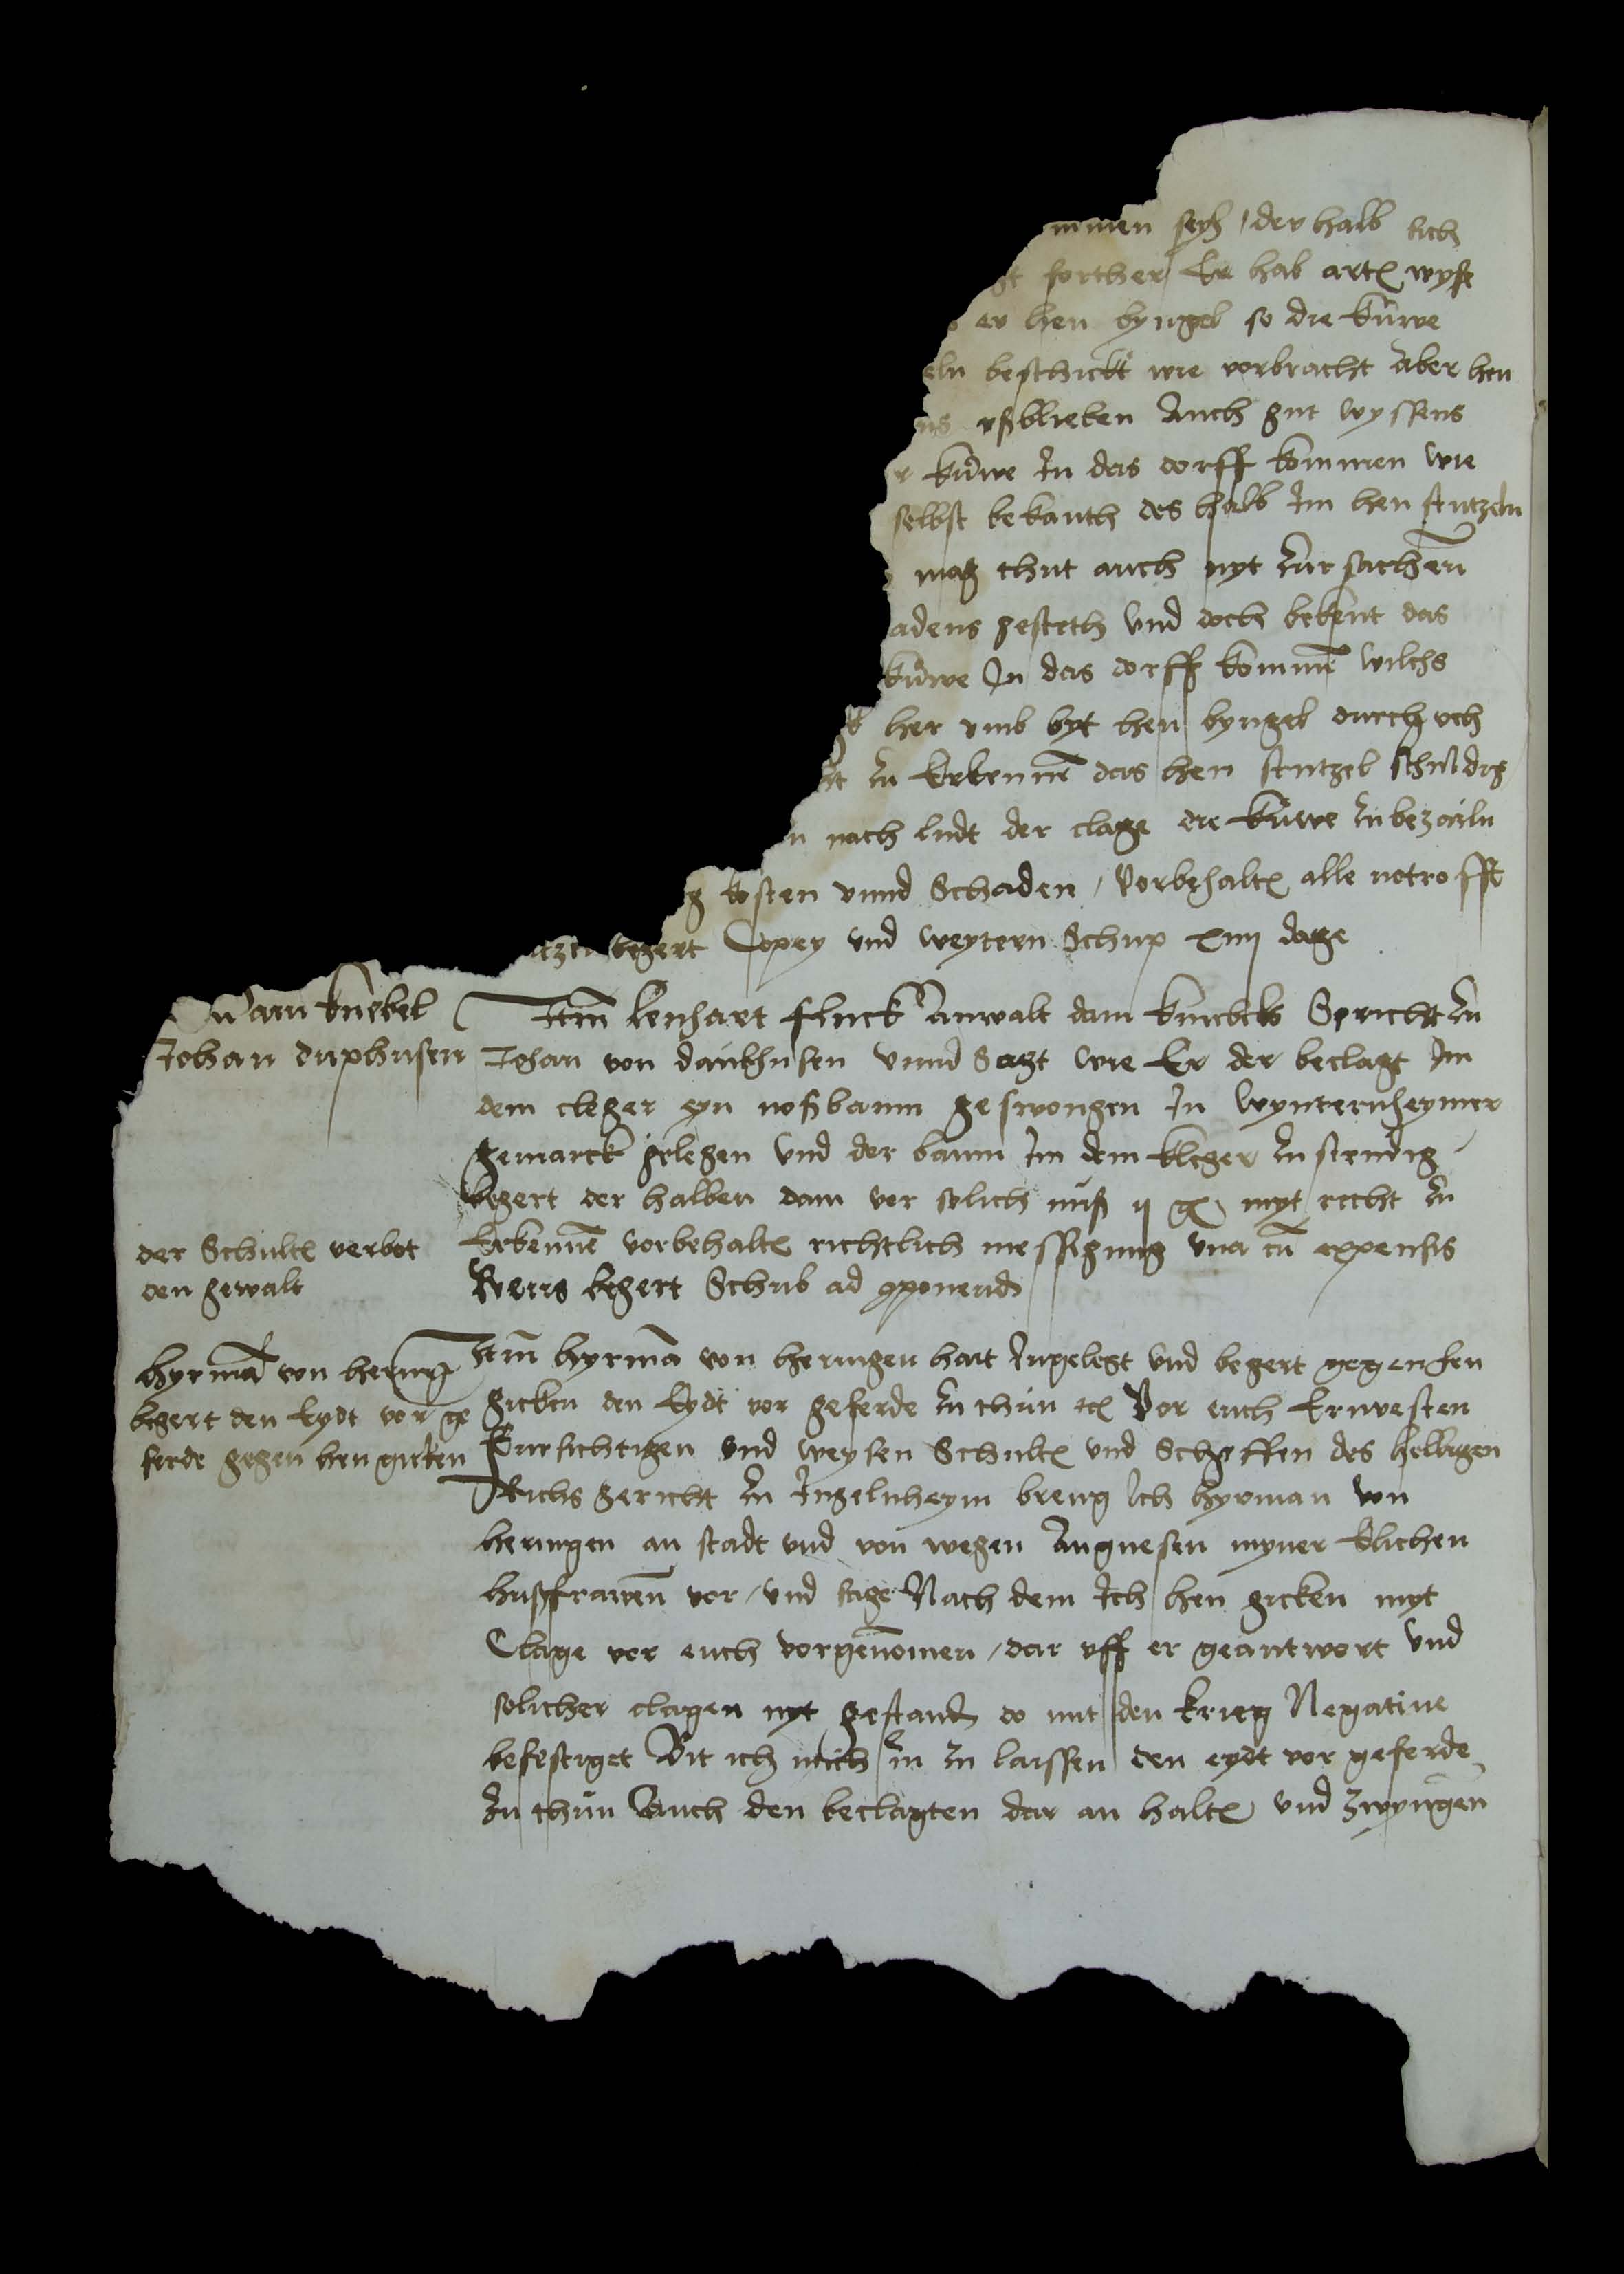 mmen seyh / der halb sich
gt forther Er hab artt wyse
er hen byngel so die kuwe
eln beschickt wie vorbracht aber hen
ns vßblieben Auch gut wyssens
r kuwe In das dorff kommen wie
selbst bekanth des halb Im hen stutzeln
mag thut auch nyt zur sachen
adens gesteth vnd doch bekent das
kuwe In das dorff komme wilchs
her vmb byt hen byngel durch vch
ht zu Erkenne das hen stutzel schuldig
n nach ludt der clage die kuwe zubezailn
g kosten vnnd Schaden / vorbehalt alle notrofft
begert Copey vnd weytern Schup xiiij dage
dam knebel
Johan duxhusen
Item lenhart fluck Anwalt dam knebels Spricht zu
Johan von dauxhusen vnnd Sagt wie Er der beclagt Im
dem cleger eyn noßbaum geswongen In Wynternheymer
gemarck gelegen vnd der baum Im dem kleger zu stendig
begert der halben dam vor solich nuß ij g myt recht zu
der Schult verbot
den gewalt
Erkenne vorbehalt richtlich messigung vna cu expensis
Reus begert Schub ad proponend
hyrma von hering
begert den Eydt vor ge
ferde gegen hen gicken
Item hyrma von heringen hait Ingelegt vnd begert gegen hen
gicken den Eydt vor geferde zu thun etc Vor euch Ernvesten
Fursichtigen vnd weysen Schult vnd Scheffen des helligen
Richs gericht zu Ingelnheym breng Ich hyrman von
heringen an stadt vnd von wegen Angnesen myner Elichen
hußfrawen vor / vnd sage Nach dem Ich hen gicken myt
Clage vor euch vorgenomen / dar vff er geantwort vnd
solicher clagen nyt gestand do mit den krieg Negatiue
befestiget Bit ich mich in zu laissen den eydt vor geferde
zu thun Auch den beclagten dar an halt vnd zwyngen